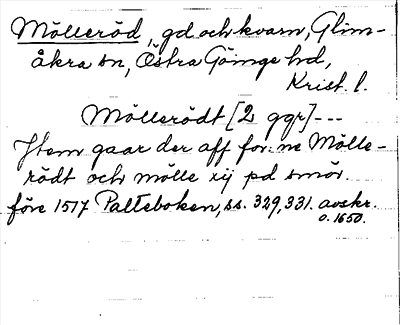 Mölleröd, gd och kvarn, Glim-
åkra sn, Östra Göinge hd,
Krist. l.
Möllerödt [2 ggr] ---
Jtem gaar der aff for:ne Mölle-
rödt och mölle xij pd smör
före 1517 Palteboken, ss. 329, 331. avskr.
o. 1650.